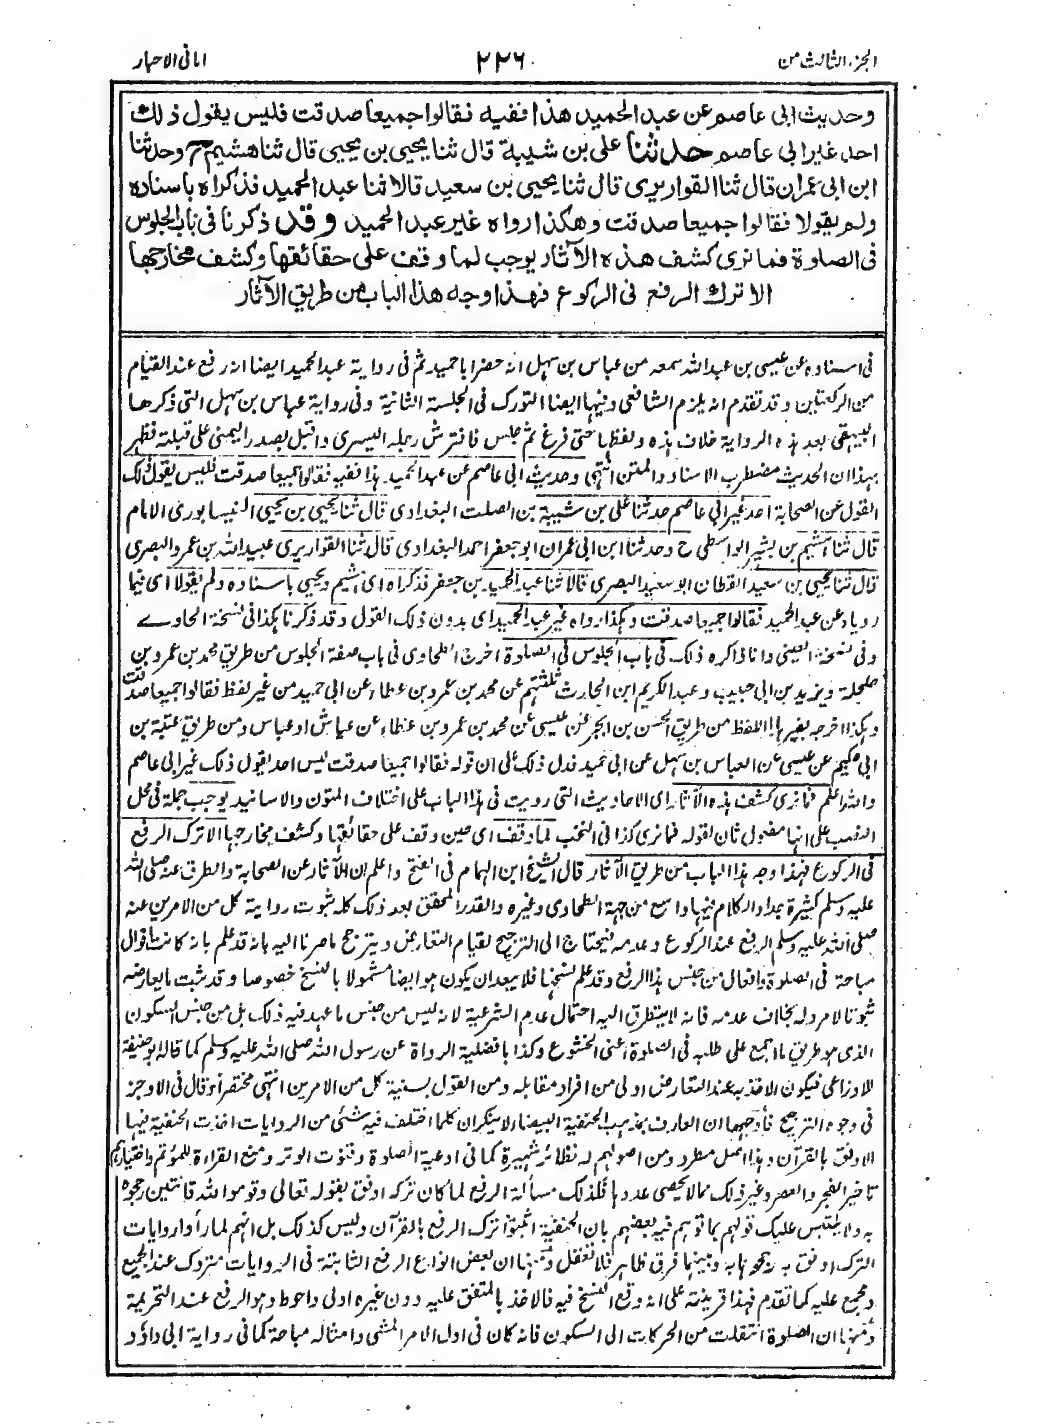 الجزء الثالث من ٢٢٦ امانى الاحبار
وحديث ابى عاصم عن عبد الحميد هذا ففيه فقالوا جميعا صدقت فليس يقول ذلك
احد غير ابى عاصم حدثنا على بن شيبة قال ثنا يحيى بن يحيى قال ثنا هشيم ح وحدثنا
ابن ابى عمران قال ثنا القواريرى قال ثنا يحيى بن سعيد قالا ثنا عبد الحميد فذكراه باسناده
ولم يقولا فقالوا جميعا صدقت وهكذا رواه غير عبد الحميد وقد ذكرنا فى باب الجلوس
فى الصلوة فما نرى كشف هذه الآثار يوجب لما وقف على حقائقها وكشف مخارجها
الا ترك الرفع فى الركوع فهذا وجه هذا الباب من طريق الآثار
فى اسناده عن عيسى بن عبد الله سمعه من عباس بن سهل انه حضر ابا حميد ثم فى رواية عبد الحميد ايضا انه رفع عند القيام
من الركعتين وقد تقدم انه يلزم الشافعى وفيها ايضا التورك فى الجلسة الثانية وفى رواية عباس بن سهل التى ذكرها
البيهقى بعد هذه الرواية خلاف هذه ولفظها حتى فرغ ثم جلس فافترش رجله اليسرى واقبل بصدر اليمنى على قبلته فظهر
بهذا ان الحديث مضطرب الاسناد والمتن انتهى وحديث ابى عاصم عن عبد الحميد هذا ففيه فقالوا جميعا صدقت فليس يقول ذلك
القول عن الصحابة احد غير ابى عاصم حدثنا على بن شيبة بن الصلت البغدادى قال ثنا يحيى بن يحيى النيسابورى الامام
قال ثنا هشيم بن بشير الواسطى ح وحدثنا ابن ابى عمران ابو جعفر احمد البغدادى قال ثنا القواريرى عبيد الله بن عمر والبصرى
قال ثنا يحيى بن سعيد القطان ابو سعيد البصرى قالا ثنا عبد الحميد بن جعفر فذكراه اى هشيم ويحيى باسناده ولم يقولا اى فيما
رويا عن عبد الحميد فقالوا جميعا صدقت وهكذا رواه غير عبد الحميد اى بدون ذلك القول وقد ذكرنا هكذا فى نسخة الحاوى
وفى نسخة العينى وانا ذاكره ذلك فى باب الجلوس فى الصلوة اخرج الطحاوى فى باب صفة الجلوس من طريق محمد بن عمرو بن
حلحلة ويزيد بن ابى حبيب وعبد الكريم ابن الحارث ثلثتهم عن محمد بن عمرو بن عطاء عن ابى حميد من غير لفظ فقالوا جميعا صدقت
وهكذا اخرجه بغير هذا اللفظ من طريق الحسن بن الحر عن عيسى عن محمد بن عمرو بن عطاء عن عياش او عباس ومن طريق عتبة بن
ابى حكيم عن عيسى عن العباس بن سهل عن ابى حميد فدل ذلك على ان قوله فقالوا جميعا صدقت ليس احد يقول ذلك غير ابى عاصم
والله اعلم فما نرى كشف هذه الآثار اى الاحاديث التى رويت فى هذا الباب على اختلاف المتون والاسانيد يوجب جملة فى محل
النصب على انها مفعول ثان لقوله فما نرى كذا فى النخب لما وقف اى حين وقف على حقائقها وكشف مخارجها الا ترك الرفع
فى الركوع فهذا وجه هذا الباب من طريق الآثار قال الشيخ ابن الهمام فى الفتح واعلم ان الآثار عن الصحابة والطرق عنه صلى الله
عليه وسلم كثيرة جدا والكلام فيها واسع من جهة الطحاوى وغيره والقدر المحقق بعد ذلك كله ثبوت رواية كل من الامرين عنه
صلى الله عليه وسلم الرفع عند الركوع وعدمه فيحتاج الى الترجيح لقيام التعارض ويترجح ما صرنا اليه بانه قد علم بانه كانت اقوال
مباحة فى الصلوة وافعال من جنس هذا الرفع وقد علم نسخها فلا يبعد ان يكون هو ايضا مشمولا بالنسخ خصوصا وقد ثبت ما يعارضه
ثبوتا لا مرد له بخلاف عدمه فانه لا يتطرق اليه احتمال عدم الشرعية لانه ليس من جنس ما عهد فيه ذلك بل من جنس السكون
الذى هو طريق ما اجمع على طلبه فى الصلوة اعنى الخشوع وكذا بافضلية الرواة عن رسول الله صلى الله عليه وسلم كما قاله ابو حنيفة
للاوزاعى فيكون الاخذ به عند التعارض اولى من افراد مقابله ومن القول بسنية كل من الامرين انتهى مختصرا وقال فى الاوجز
فى وجوه الترجيح فاوجهها ان العارف بمذهب الحنفية البيضاء لا يستنكر ان كلما اختلف فيه شئ من الروايات اخذت الحنفية فيها
الاوفق بالقرآن وهذا اصل مطرد ومن اصولهم له نظائر شهيرة كما فى ادعية الصلوة وقنوت الوتر ومنع القراءة للمؤتم واختيارهم
تاخير الفجر والعصر وغير ذلك مما لا يحصى عددها فلذلك مسألة الرفع لما كان تركه اوفق بقوله تعالى وقوموا لله قانتين رجحوه
به ولا يلتبس عليك قولهم بما توهم فيه بعضهم بان الحنفية اثبتوا ترك الرفع بالقرآن وليس كذلك بل انهم لما رأوا روايات
الترك اوفق به رجحوها به وبينهما فرق ظاهر فلا تغفل ومنها ان بعض انواع الرفع الثابتة فى الروايات متروك عند الجميع
ومجمع عليه كما تقدم فهذا قرينة على انه وقع النسخ فيه فالاخذ بالمتفق عليه دون غيره اولى واحوط وهو الرفع عند التحريمة
ومنها ان الصلوة انتقلت من الحركات الى السكون فانه كان فى اول الامر المشى وامثاله مباحة كما فى رواية ابى داؤد